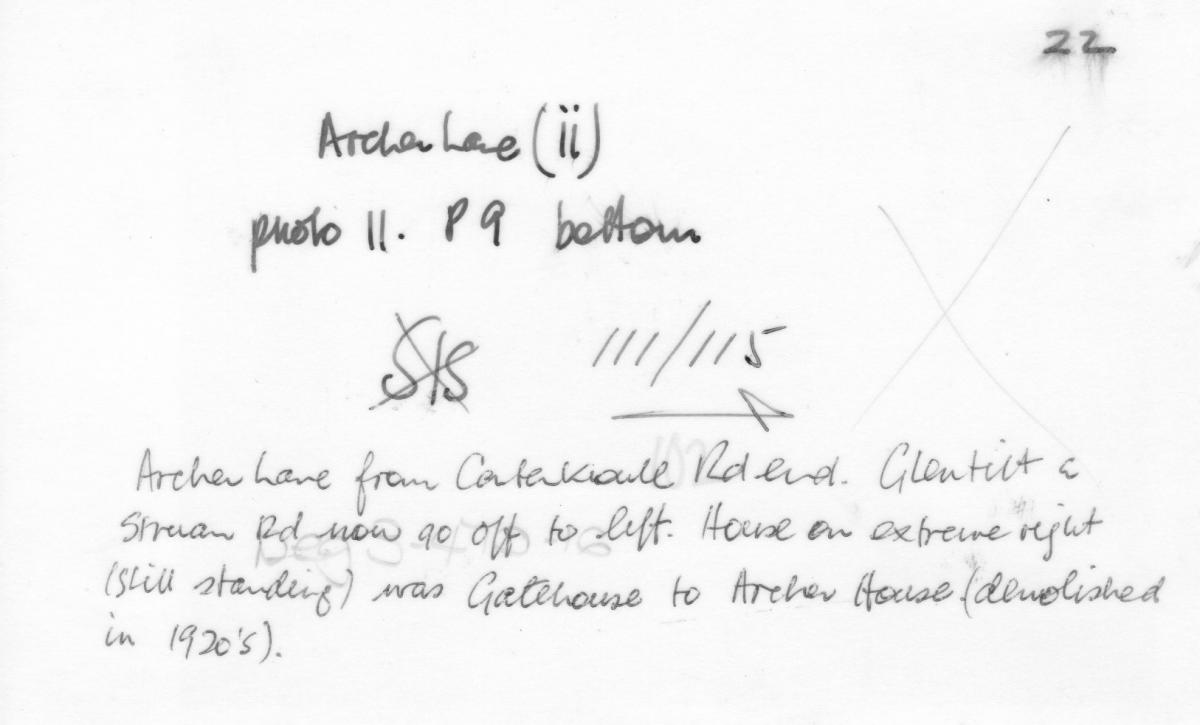 22
Archer Lane (ii)
photo 11. P 9 bottom
S/S
111/115
Archer Lane from Carterknowle Rd end. Glentilt &
Struan Rd now go off to left. House on extreme right
(still standing) was Gatehouse to Archer House (demolished
in 1920's).